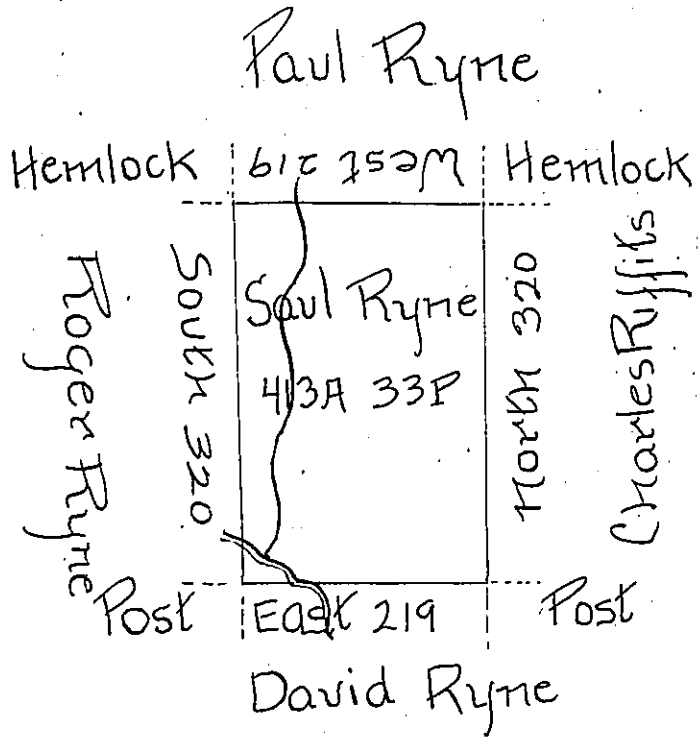 Paul Ryne
Hemlock West 219 Hemlock
Roger Ryne
South 320
Saul Ryne
413A 33P
North 320
Charles Riffits
Post East 219 Post
David Ryne